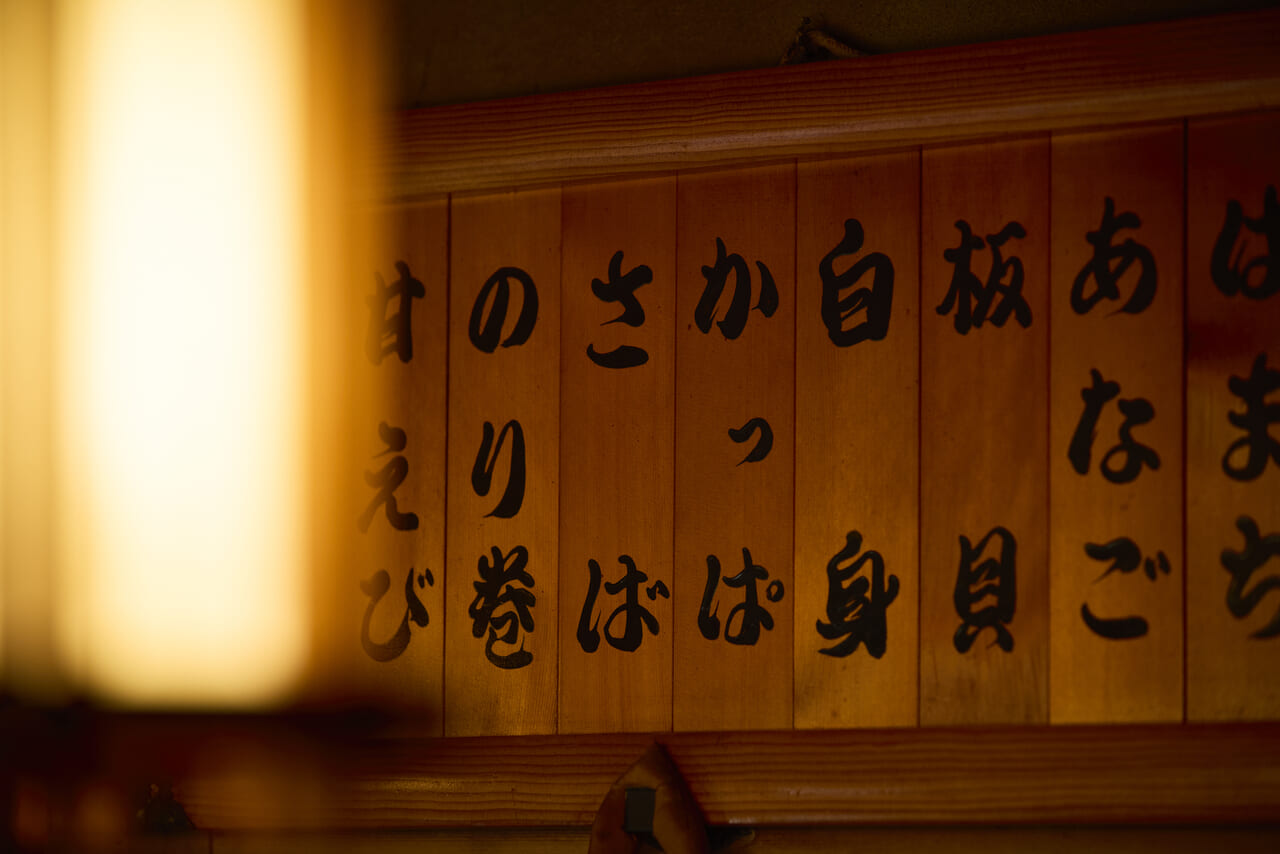 はまち
あなご
板貝
白身
かっぱ
さば
のり巻
甘えび